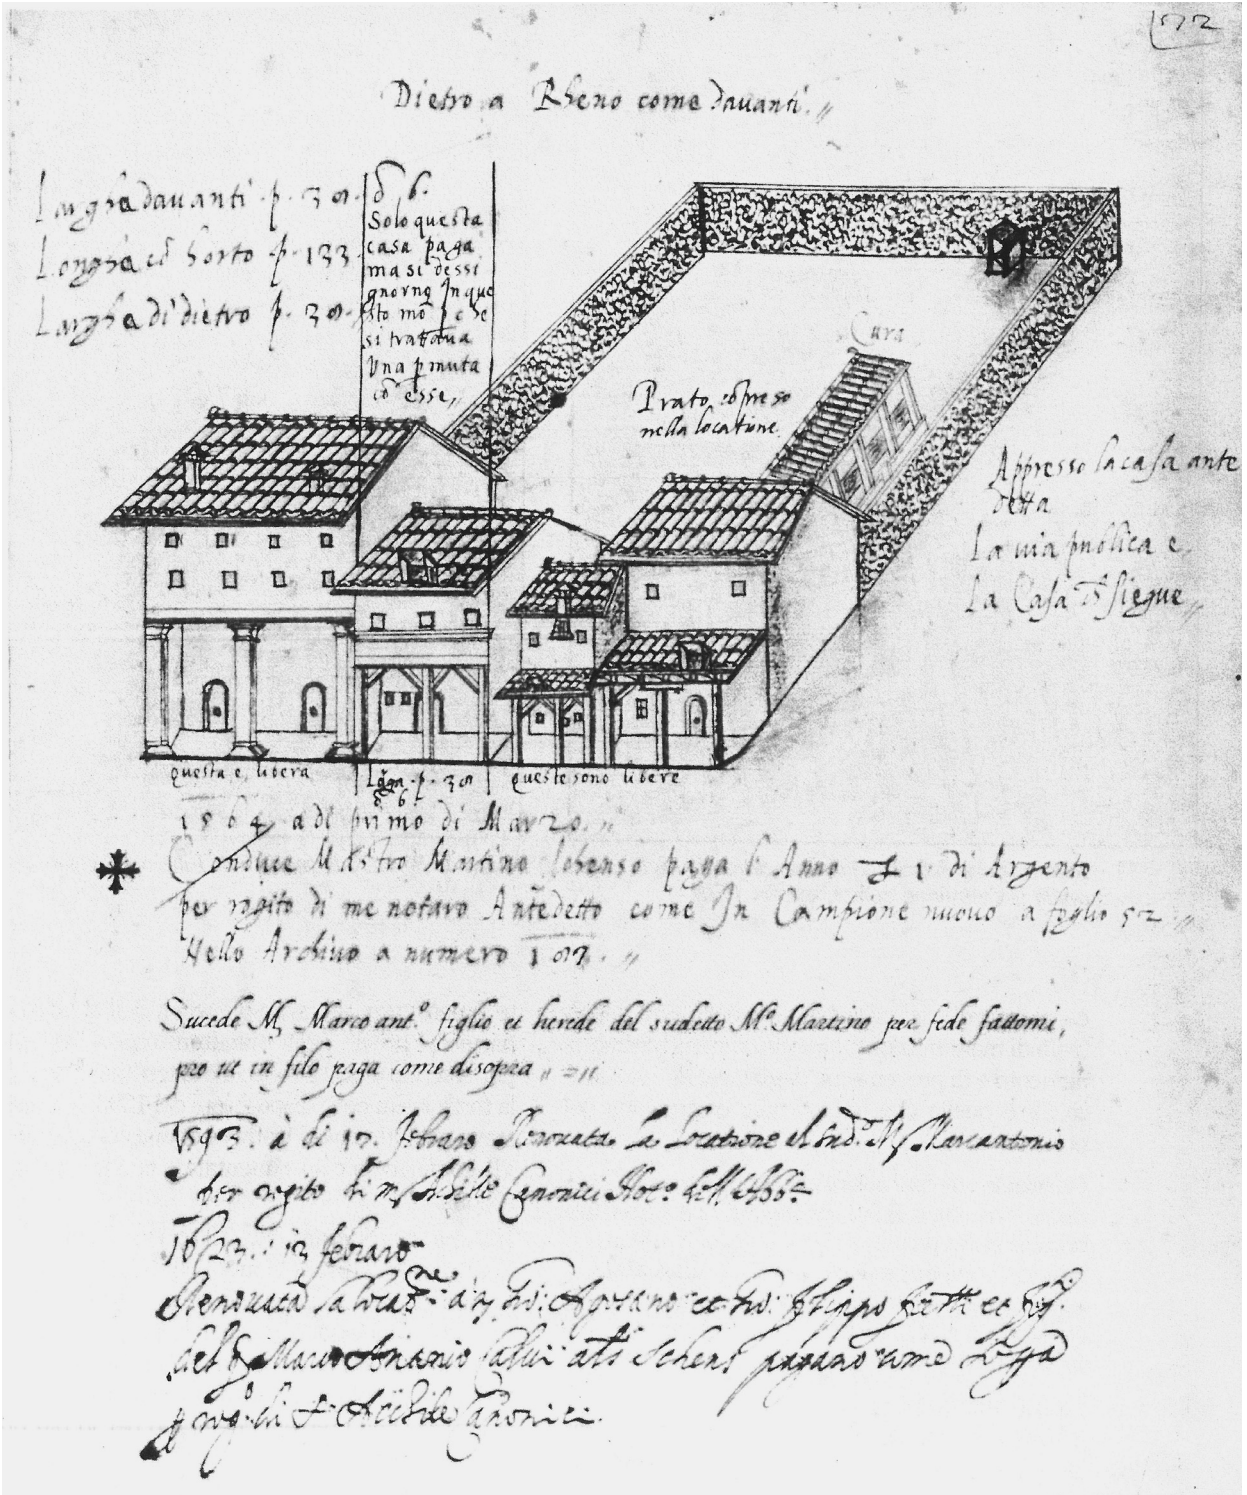 Dietro a Rheno come davanti
Larghe davanti p. 30.
Longhe cō horto p. 133
Larghe di dietro p. 30.
ō 6.
Solo questa
casa paga
ma si dessi
gnorno In que
sto mō p che
si trattava
Una pmuta
cō esse,,
Cura
Prato, cōpreso
nella locatione.
Appresso la casa ante
detta
La via publica e,
La Casa siegue,,
questa e, libera
Lōga p. 30
ō 6
queste sono libere
1564 a di primo di Marzo.
Conduce Mastro Martino paga l Anno 1 di Argento
per rogito di me notaro Antedetto come In Campione nuovo a foglio 52
Nello Archivo a numero
Sucede M. Marco ant.º figlio et herede del sudetto M.º Martino per fede fattomi,
pro ut in filo paga come disopra
1593. à di 17. febraro Renovata la Locatione al sud.º M. Marcantonio
per rogito di m. Achille Canonici Not.º dell Abb.ᵃ
1623. 13 febraro
Renovata la locat.ne à et Filippo et
del Marco Antonio pagano come
rog.º di Achile Canonici.